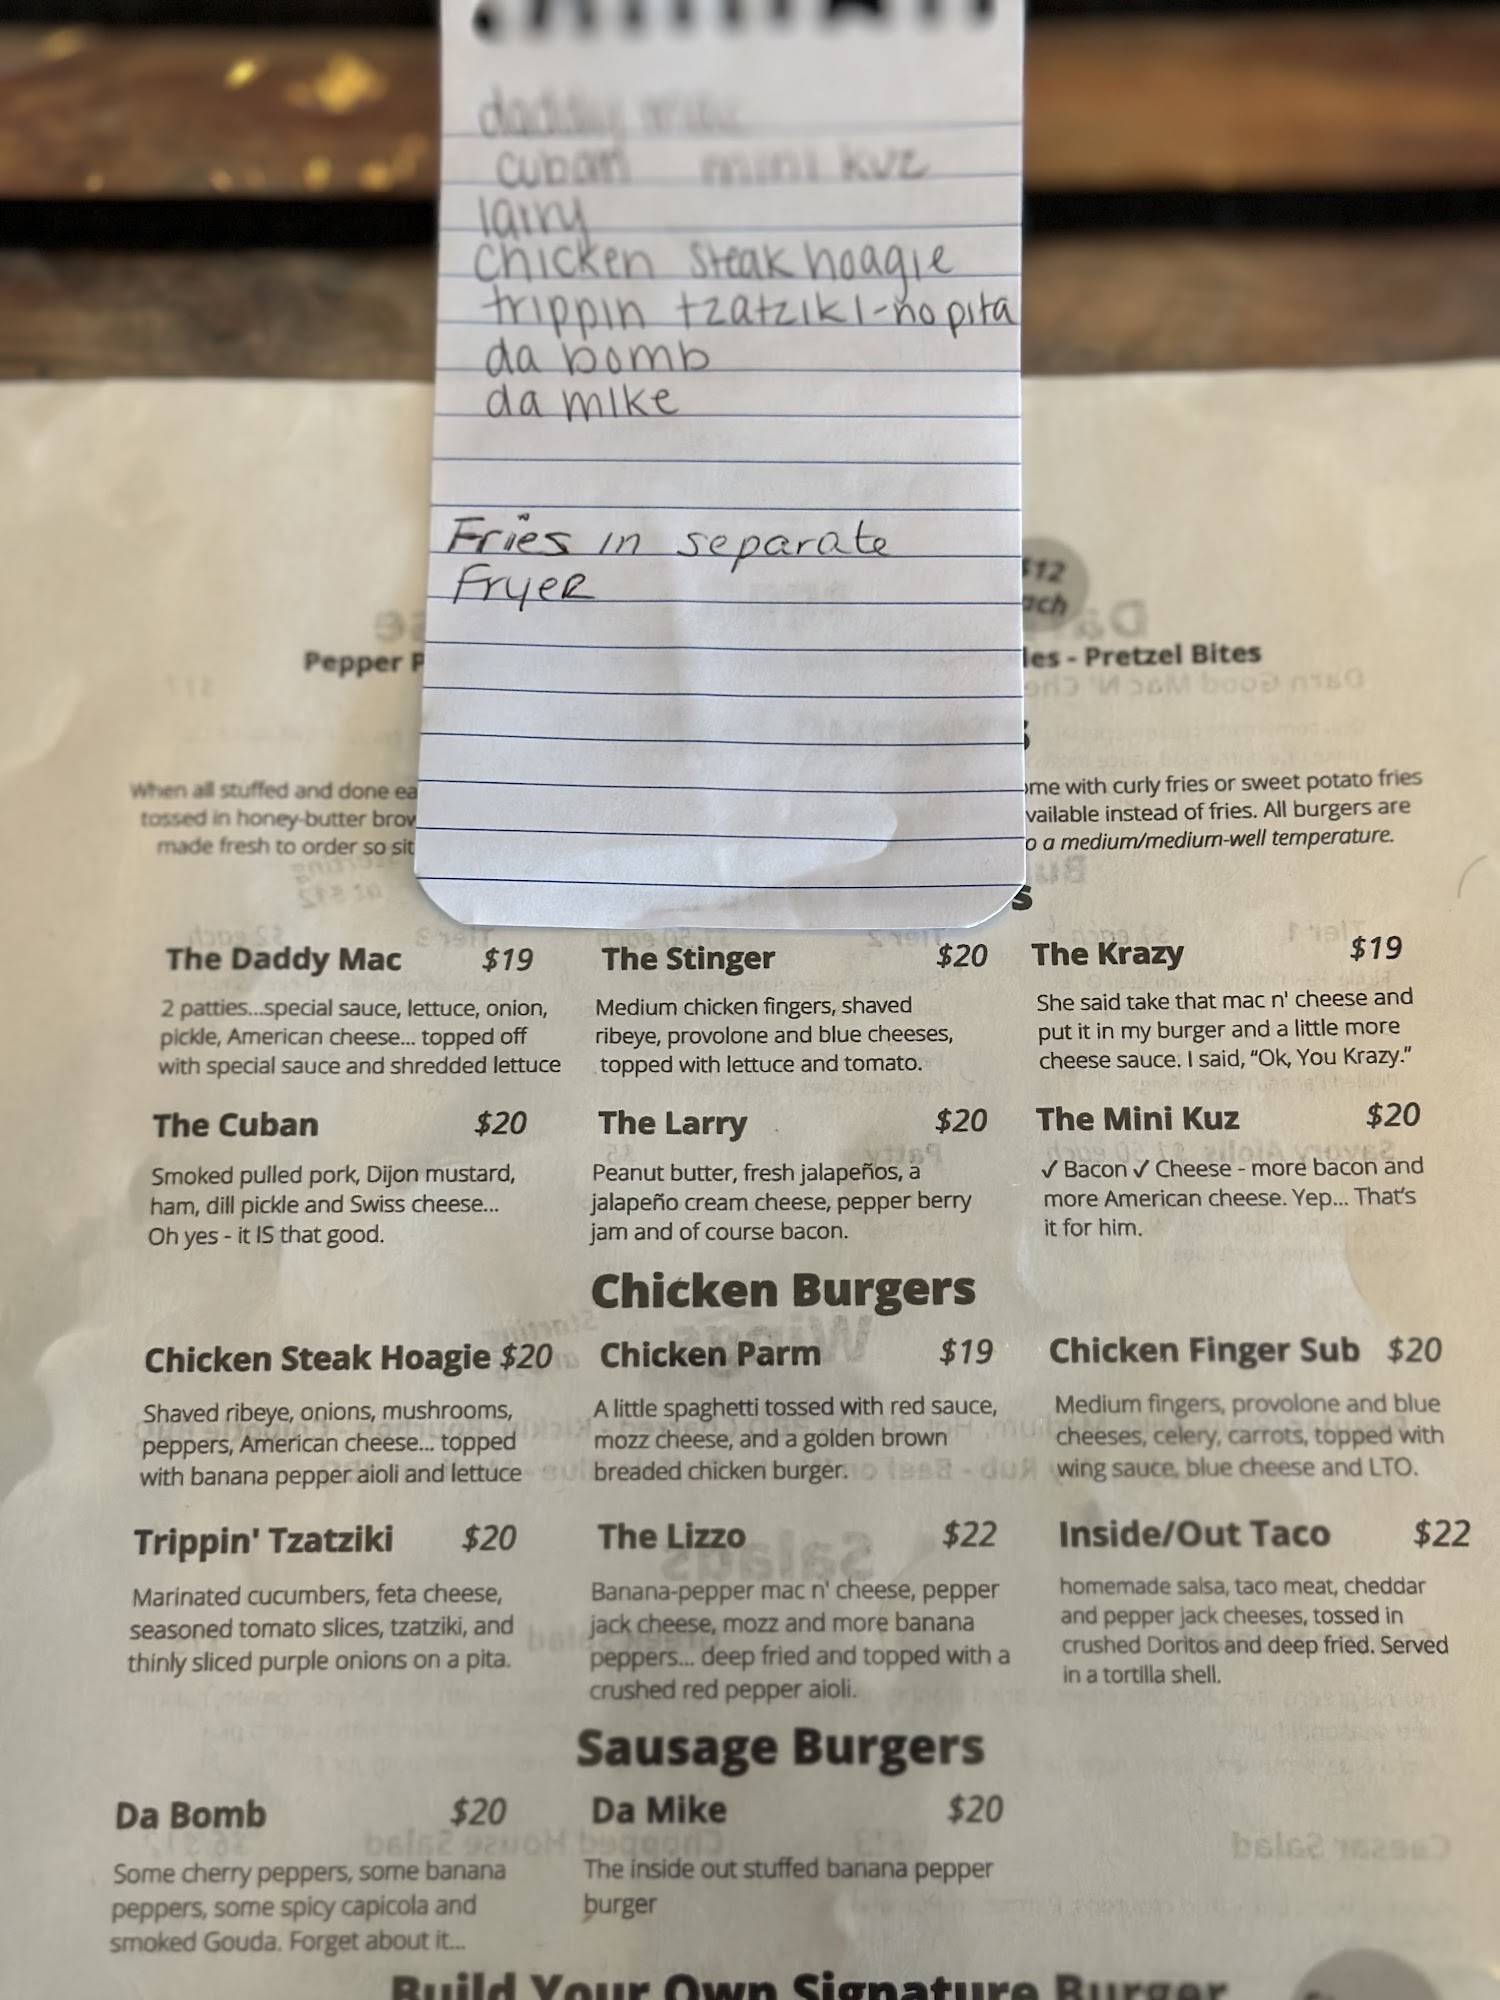 daddy mac
cuban mini kuz
larry
chicken steak hoagie
trippin tzatziki - no pita
da bomb
da mike
Fries in separate
Fryer
$12
Pepper P
les - Pretzel Bites
When all stuffed and done ea
ome with curly fries or sweet potato fries
tossed in honey-butter brow
vailable instead of fries. All burgers are
made fresh to order so sit
o a medium/medium-well temperature.
The Daddy Mac $19
2 patties...special sauce, lettuce, onion,
pickle, American cheese... topped off
with special sauce and shredded lettuce
The Stinger $20
Medium chicken fingers, shaved
ribeye, provolone and blue cheeses,
topped with lettuce and tomato.
The Krazy $19
She said take that mac n' cheese and
put it in my burger and a little more
cheese sauce. I said, "Ok, You Krazy."
The Cuban $20
Smoked pulled pork, Dijon mustard,
ham, dill pickle and Swiss cheese...
Oh yes - it IS that good.
The Larry $20
Peanut butter, fresh jalapeños, a
jalapeño cream cheese, pepper berry
jam and of course bacon.
The Mini Kuz $20
✓ Bacon ✓ Cheese - more bacon and
more American cheese. Yep... That's
it for him.
Chicken Burgers
Chicken Steak Hoagie $20
Shaved ribeye, onions, mushrooms,
peppers, American cheese... topped
with banana pepper aioli and lettuce
Chicken Parm $19
A little spaghetti tossed with red sauce,
mozz cheese, and a golden brown
breaded chicken burger.
Chicken Finger Sub $20
Medium fingers, provolone and blue
cheeses, celery, carrots, topped with
wing sauce, blue cheese and LTO.
Trippin' Tzatziki $20
Marinated cucumbers, feta cheese,
seasoned tomato slices, tzatziki, and
thinly sliced purple onions on a pita.
The Lizzo $22
Banana-pepper mac n' cheese, pepper
jack cheese, mozz and more banana
peppers... deep fried and topped with a
crushed red pepper aioli.
Inside/Out Taco $22
homemade salsa, taco meat, cheddar
and pepper jack cheeses, tossed in
crushed Doritos and deep fried. Served
in a tortilla shell.
Sausage Burgers
Da Bomb $20
Some cherry peppers, some banana
peppers, some spicy capicola and
smoked Gouda. Forget about it...
Da Mike $20
The inside out stuffed banana pepper
burger
Build Your Own Signature Burger